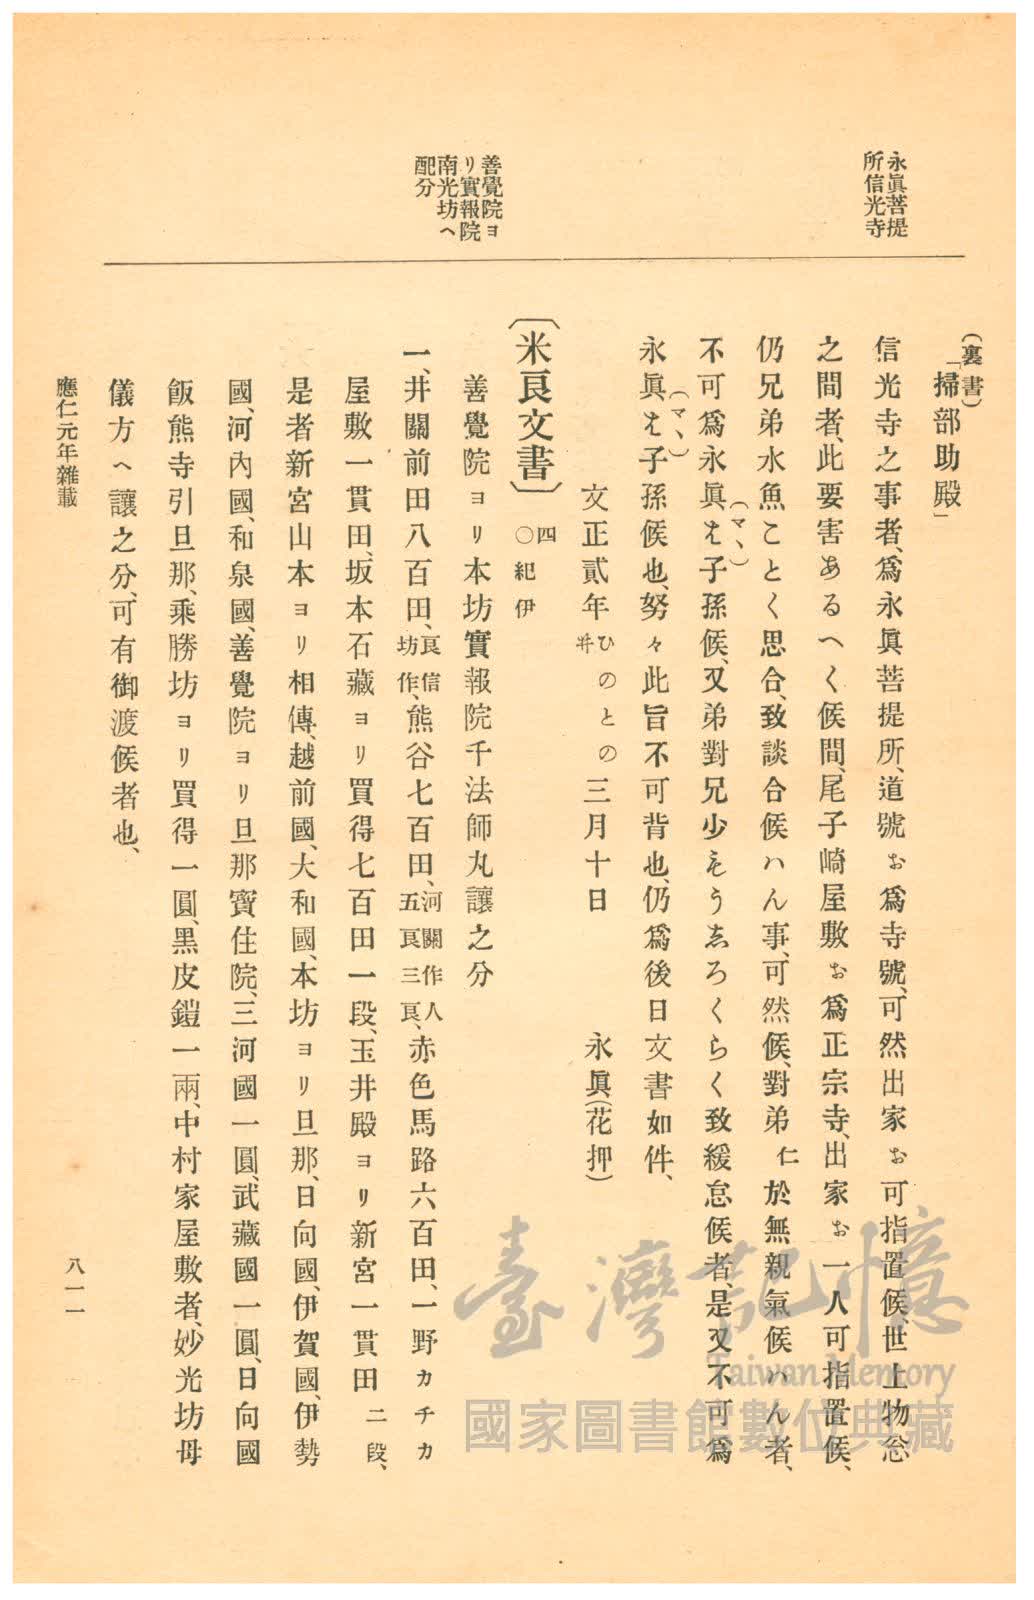 永眞菩提
所信光寺
善覺院ヨ
リ實報院
南光坊ヘ
配分
(裏書)
「掃部助殿」
信光寺之事者、爲永眞菩提所、道號お爲寺號、可然出家お可指置候、世上物忩
之間者、此要害あるへく候間、尾子崎屋敷お爲正宗寺、出家お一人可指置候、
仍兄弟水魚ことく思合、致談合候ハん事、可然候、對弟仁於無親氣候ハん者、
不可爲永眞(マヽ)も子孫候、又弟對兄少もうしろくらく致緩怠候者、是又不可爲
永眞(マヽ)も子孫候也、努々此旨不可背也、仍爲後日文書如件、
文正貳年ひのとの井三月十日 永眞(花押)
〔米良文書〕四○紀伊
善覺院ヨリ本坊實報院千法師丸讓之分
一、井關前田八百田、良信坊作、熊谷七百田、河關作人五良三良、赤色馬路六百田、一野カチカ
屋敷一貫田、坂本石藏ヨリ買得七百田一段、玉井殿ヨリ新宮一貫田二段、
是者新宮山本ヨリ相傳、越前國、大和國、本坊ヨリ旦那、日向國、伊賀國、伊勢
國、河內國、和泉國、善覺院ヨリ旦那寶住院、三河國一圓、武藏國一圓、日向國
飯熊寺引旦那、乘勝坊ヨリ買得一圓、黑皮鎧一兩、中村家屋敷者、妙光坊母
儀方ヘ讓之分、可有御渡候者也、
應仁元年雜載
八一一
臺灣記憶
Taiwan Memory
國家圖書館數位典藏